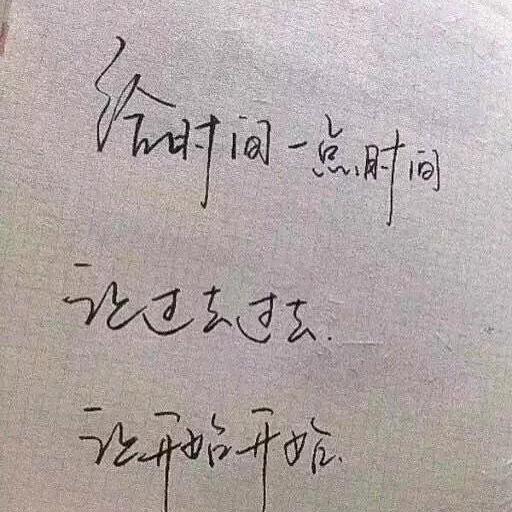 给时间一点时间
让过去过去.
让开始开始.